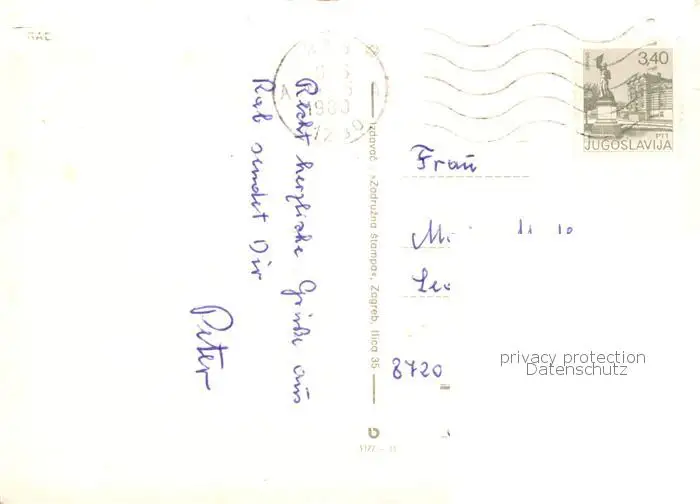 Recht herzliche Grüße aus
Rab sendet Dir
Peter
Izdavač: »Zadružna štampa«, Zagreb, Ilica 35
1980
3,40
PTT
JUGOSLAVIJA
Frau
8720
privacy protection
Datenschutz